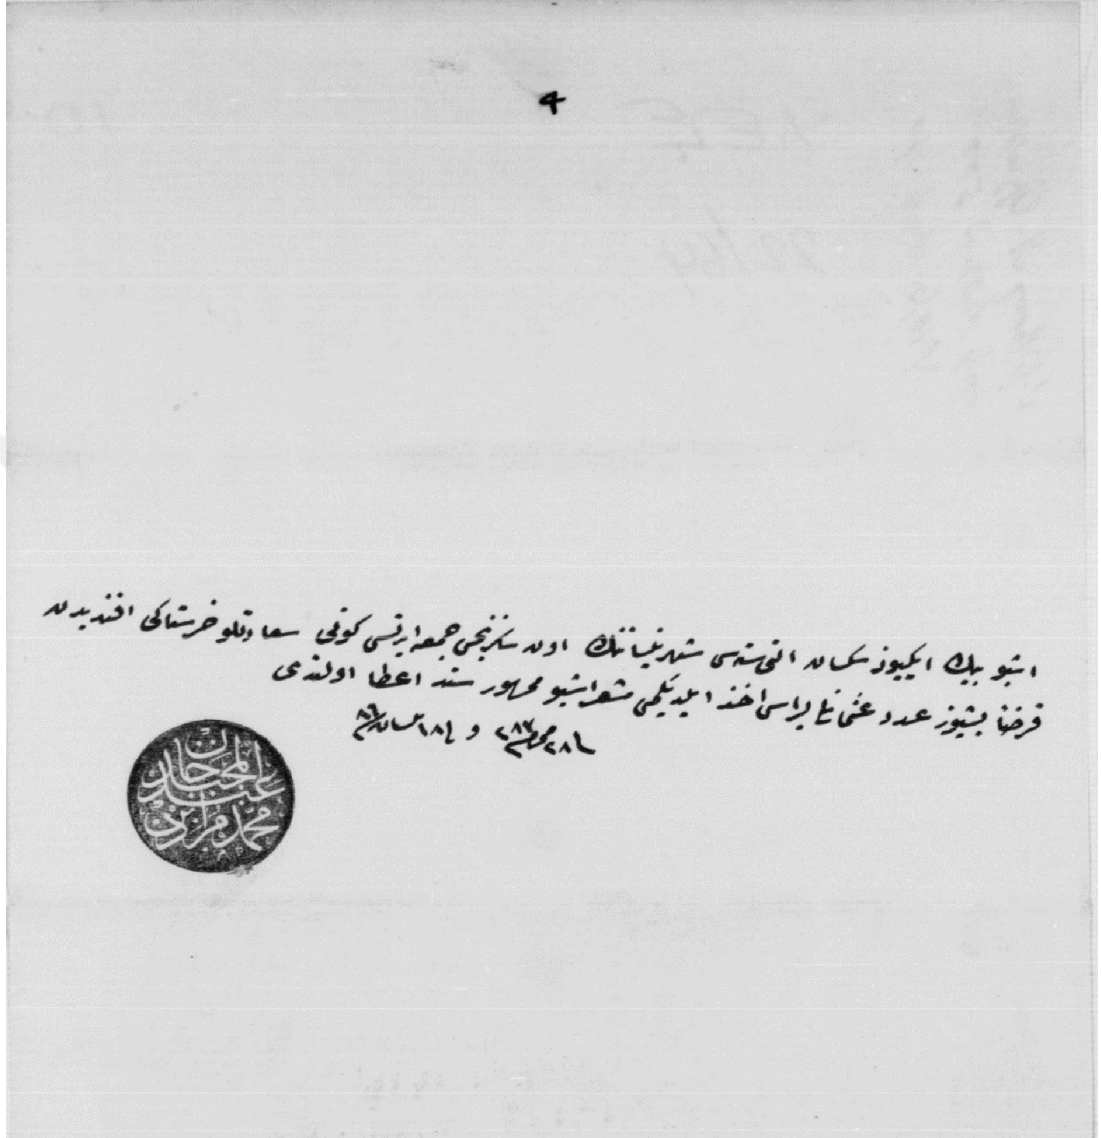 4
اشبو بيك ايكيوز سكسان التى سنه سى شهر نيساننك اون سكزنجى جمعه ايرتسى كونى سعادتلو خرستاكى افنديدن
قرضا بشيوز عدد عثمانلى ليراسى اخذ ايلديكمى مشعر اشبو ممهور سند اعطا اولندى
فى ٢٨ محرم ٢٨٧ و فى ١٨ نيسان ٨٦
محمد مراد بن
عبد
خان